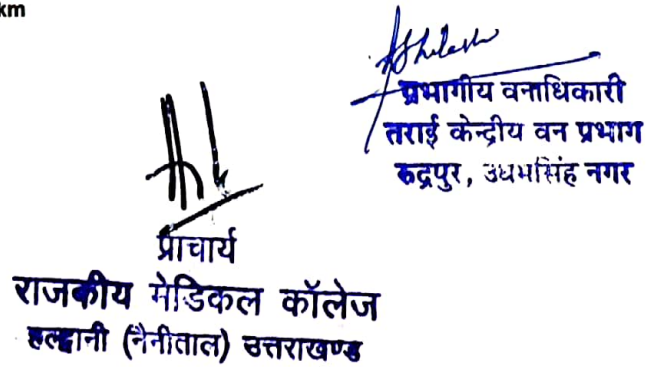 km
प्रभागीय वनाधिकारी
तराई केन्द्रीय वन प्रभाग
रुद्रपुर, उधमसिंह नगर
प्राचार्य
राजकीय मेडिकल कॉलेज
हल्द्वानी (नैनीताल) उत्तराखण्ड